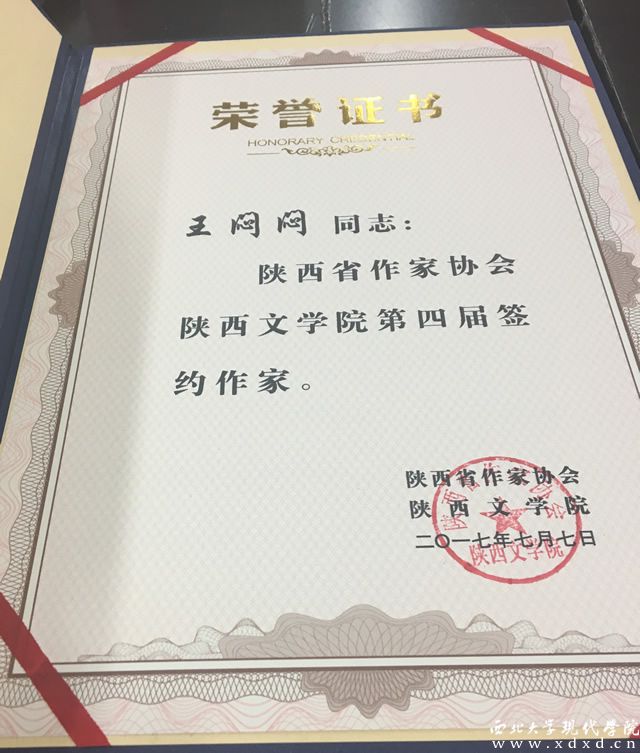 荣誉证书
HONORARY CREDENTIAL
王闷闷 同志：
陕西省作家协会
陕西文学院第四届签
约作家。
陕西省作家协会
陕西文学院
二〇一七年七月七日
陕西文学院
西北大学现代学院
www.xdxd.cn